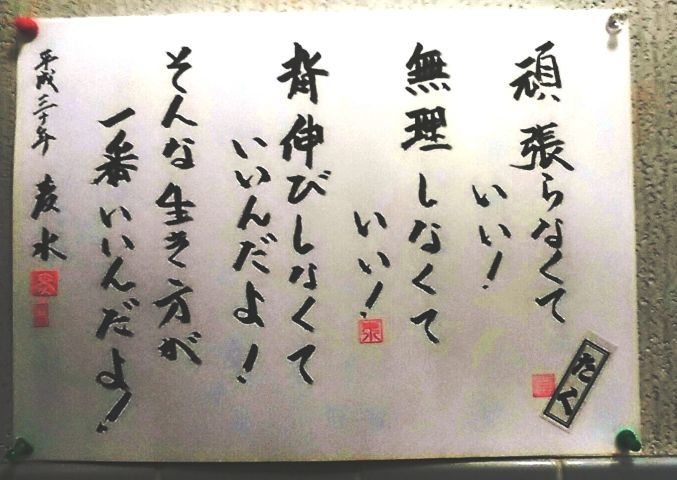 頑張らなくて
いい!
無理しなくて
いい!
背伸びしなくて
いいんだよ!
そんな生き方が
一番いいんだよ!
平成三十年
たく